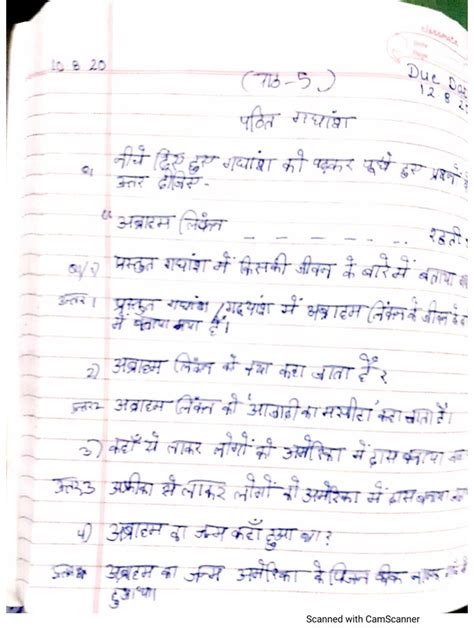 classmate
Date
Page
10 8 20
Due Da
12 8 2
(पाठ-5)
पठित गधांश
नीचे दिए हुए गधांश को पढ़कर पूछे हुए
उत्तर दीजिए -
अब्राहम लिंकन - - - - - - रहती
प्रस्तुत गधांश में किसकी जीवन के बारे में बताया
उत्तर 1 प्रस्तुत गधांश / गदयांश में अब्राहम लिंकन के जीवन के
में बताया गया है।
2) अब्राहम लिंकन को क्या कहा जाता है ?
उत्तर2 अब्राहम लिंकन को 'आजादी का मसीहा' कहा जाता है।
3) कहाँ से लाकर लोगों को अमेरिका में दास बनाया
उत्तर3 अफ्रीका से लाकर लोगों को अमेरिका में दास बनाया
4) अब्राहम का जन्म कहाँ हुआ था?
अब्राहम का जन्म अमेरिका के पिजन क्रीक नामक
हुआ था।
Scanned with CamScanner